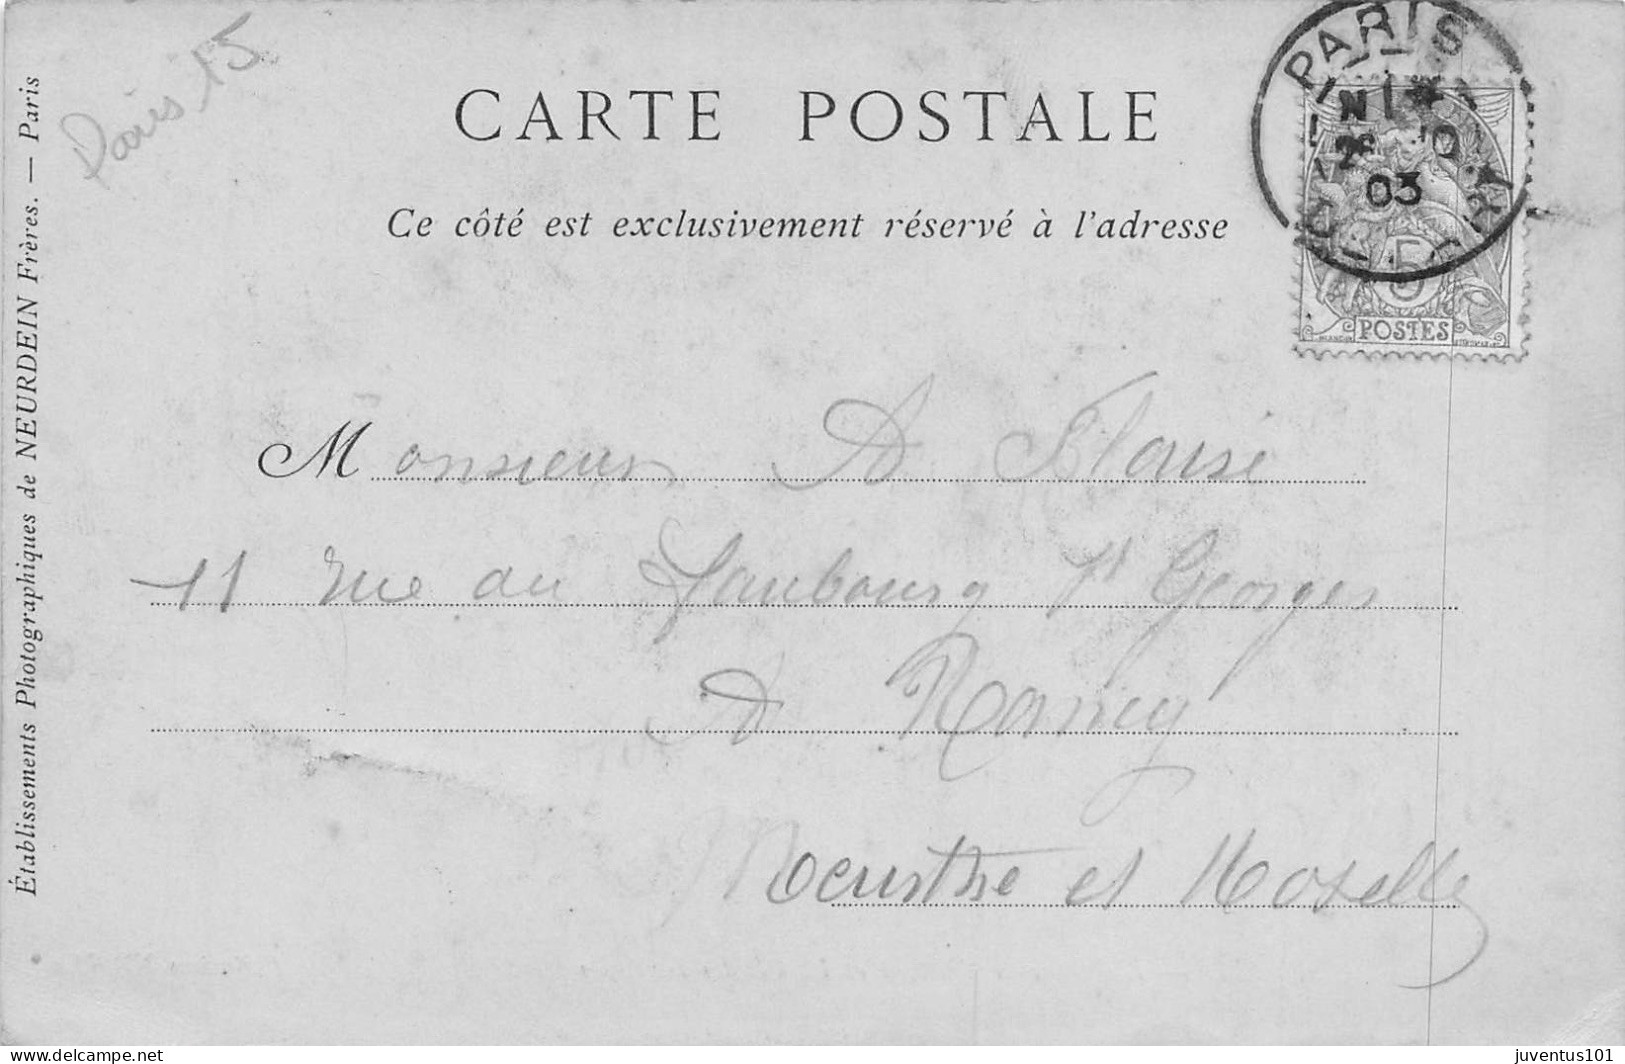 Paris 15
CARTE POSTALE
Ce côté est exclusivement réservé à l'adresse
PARIS
03
5
POSTES
Monsieur A Blaise
11 rue du Faubourg St Georges
A Nancy
Meurthe et Moselle
Établissements Photographiques de NEURDEIN Frères. — Paris
www.delcampe.net
juventus101